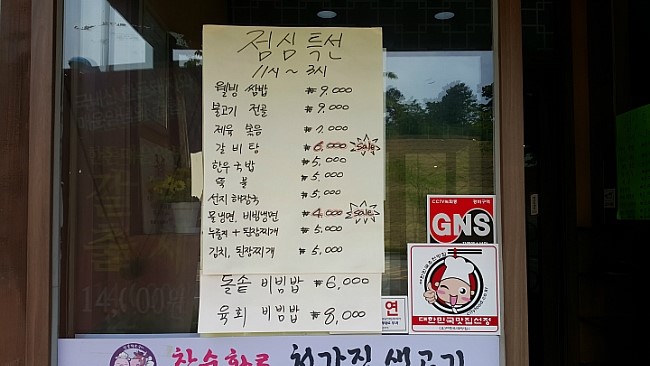 점심 특선
11시 ~ 3시
웰빙 쌈밥 ₩9,000
불고기 전골 ₩9,000
제육 볶음 ₩7,000
갈비탕 ₩6,000 Sale
한우국밥 ₩5,000
뚝불 ₩5,000
선지해장국 ₩5,000
물냉면, 비빔냉면 ₩4,000 Sale
누룽지 + 된장찌개 ₩5,000
김치, 된장찌개 ₩5,000
돌솥 비빔밥 ₩6,000
육회 비빔밥 ₩8,000
GNS
대한민국맛집선정
연
참숯화로 처가집 생고기